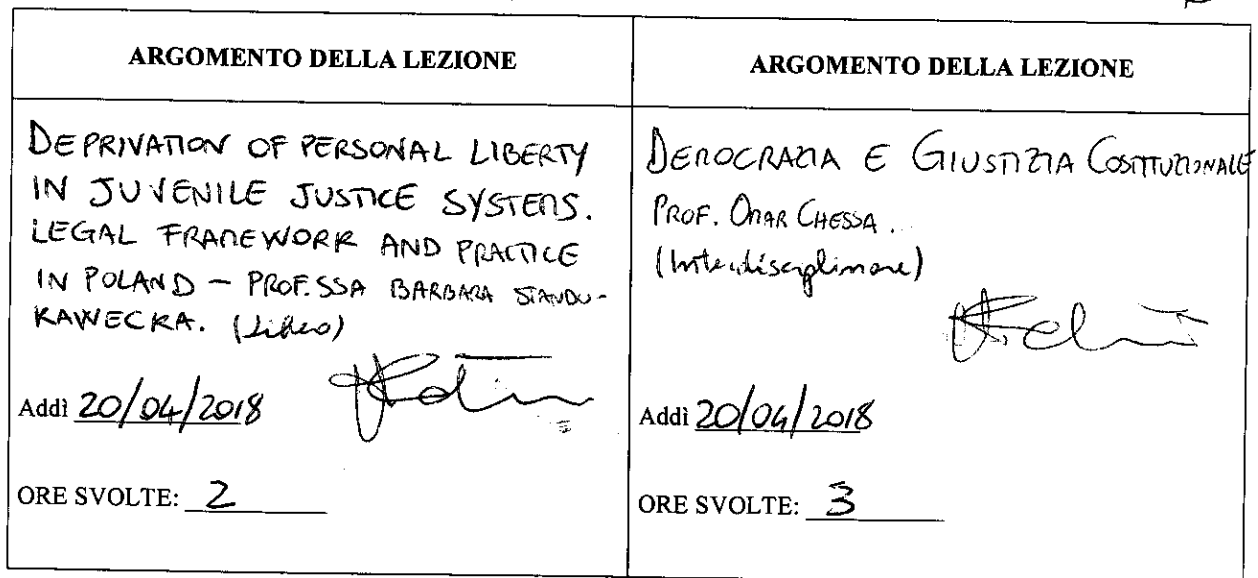 ARGOMENTO DELLA LEZIONE
DEPRIVATION OF PERSONAL LIBERTY
IN JUVENILE JUSTICE SYSTEMS.
LEGAL FRAMEWORK AND PRACTICE
IN POLAND – PROF.SSA BARBARA STANDO-
KAWECKA. (Libero)
Addì 20/04/2018
ORE SVOLTE: 2
ARGOMENTO DELLA LEZIONE
DEMOCRAZIA E GIUSTIZIA COSTITUZIONALE
PROF. OMAR CHESSA.
(Interdisciplinare)
Addì 20/04/2018
ORE SVOLTE: 3